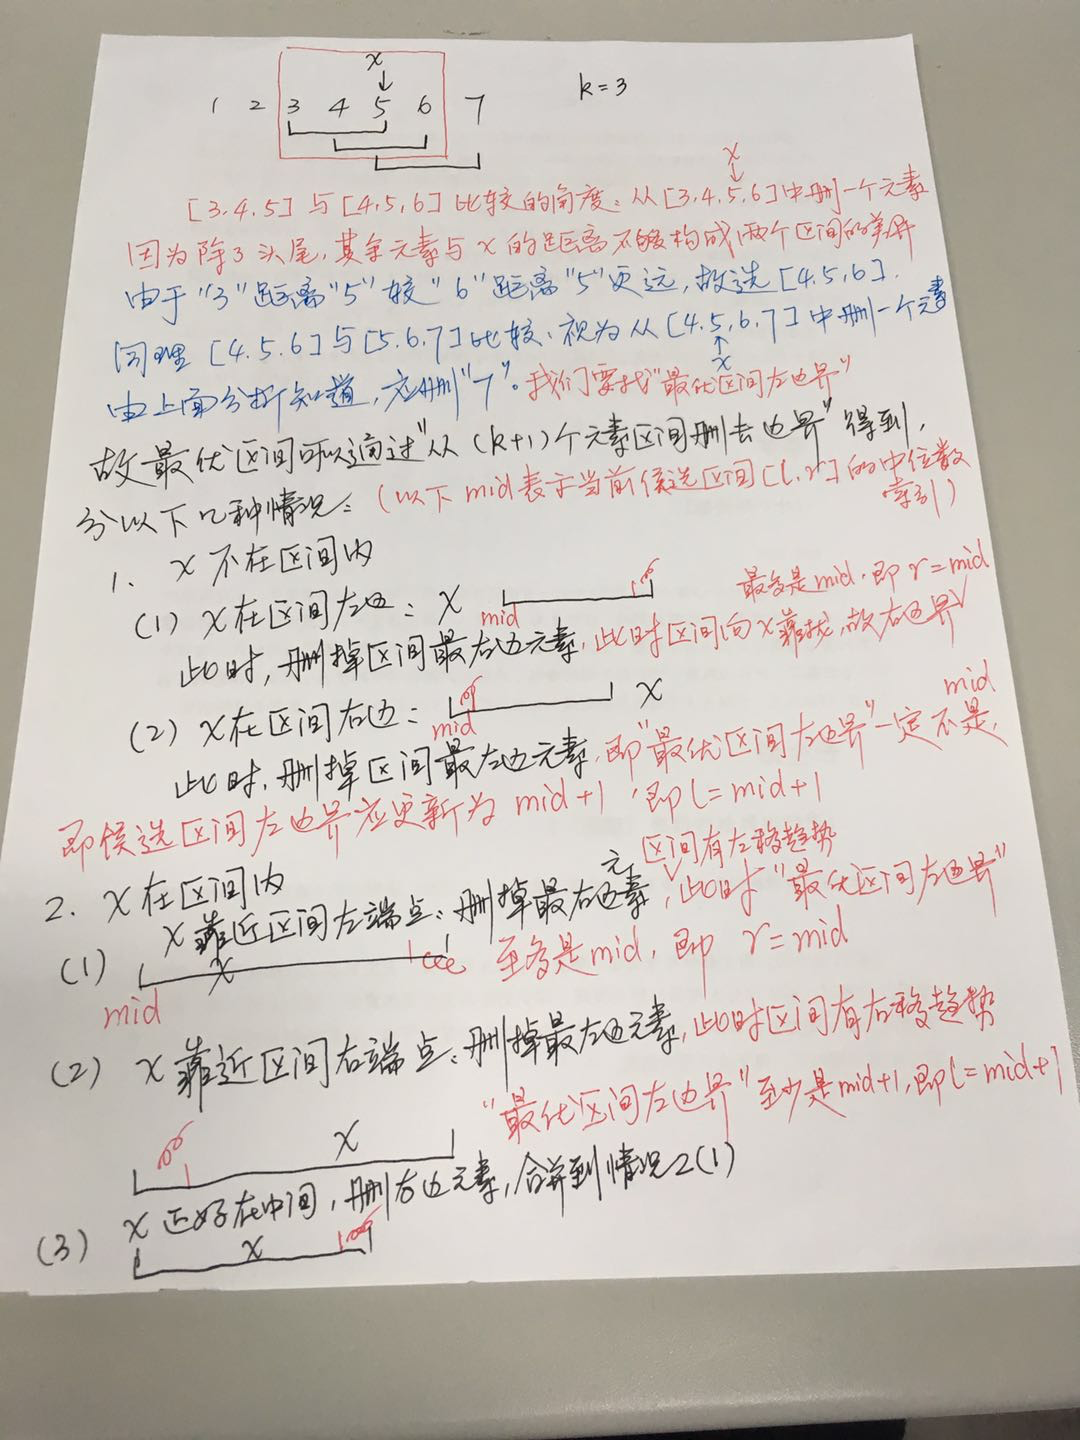 x
↓
1 2 3 4 5 6 7 k=3
x
↓
[3,4,5]与[4,5,6]比较的角度：从[3,4,5,6]中删一个元素
因为除了头尾，其余元素与x的距离不能够构成两个区间的差异
由于"3"距离"5"较"6"距离"5"更远，故选[4,5,6].
同理[4,5,6]与[5,6,7]比较，视为从[4,5,6,7]中删一个元素
↑
x
由上面分析知道，应删"7"。我们要找"最优区间左边界"
故最优区间可以通过"从(k+1)个元素区间删去边界"得到，
分以下几种情况：(以下mid表示当前候选区间[l,r]的中位数索引)
1. x不在区间内
(1) x在区间左边： x mid 最多是mid，即r=mid
此时，删掉区间最右边元素，此时区间向x靠拢，故右边界
(2) x在区间右边： mid x
此时，删掉区间最左边元素，即"最优区间左边界"一定不是mid，
即候选区间左边界应更新为mid+1，即l=mid+1
2. x在区间内 区间有左移趋势
(1) x靠近区间左端点：删掉最右边元素，此时"最优区间左边界"
x 至多是mid，即 r=mid
mid
(2) x靠近区间右端点：删掉最左边元素，此时区间有右移趋势
"最优区间左边界"至少是mid+1，即l=mid+1
x
(3) x正好在中间，删右边元素，合并到情况2(1)
x